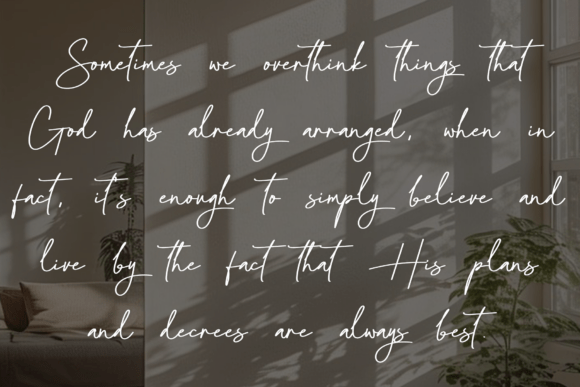 Sometimes we overthink things that
God has already arranged, when in
fact, it's enough to simply believe and
live by the fact that His plans
and decrees are always best.